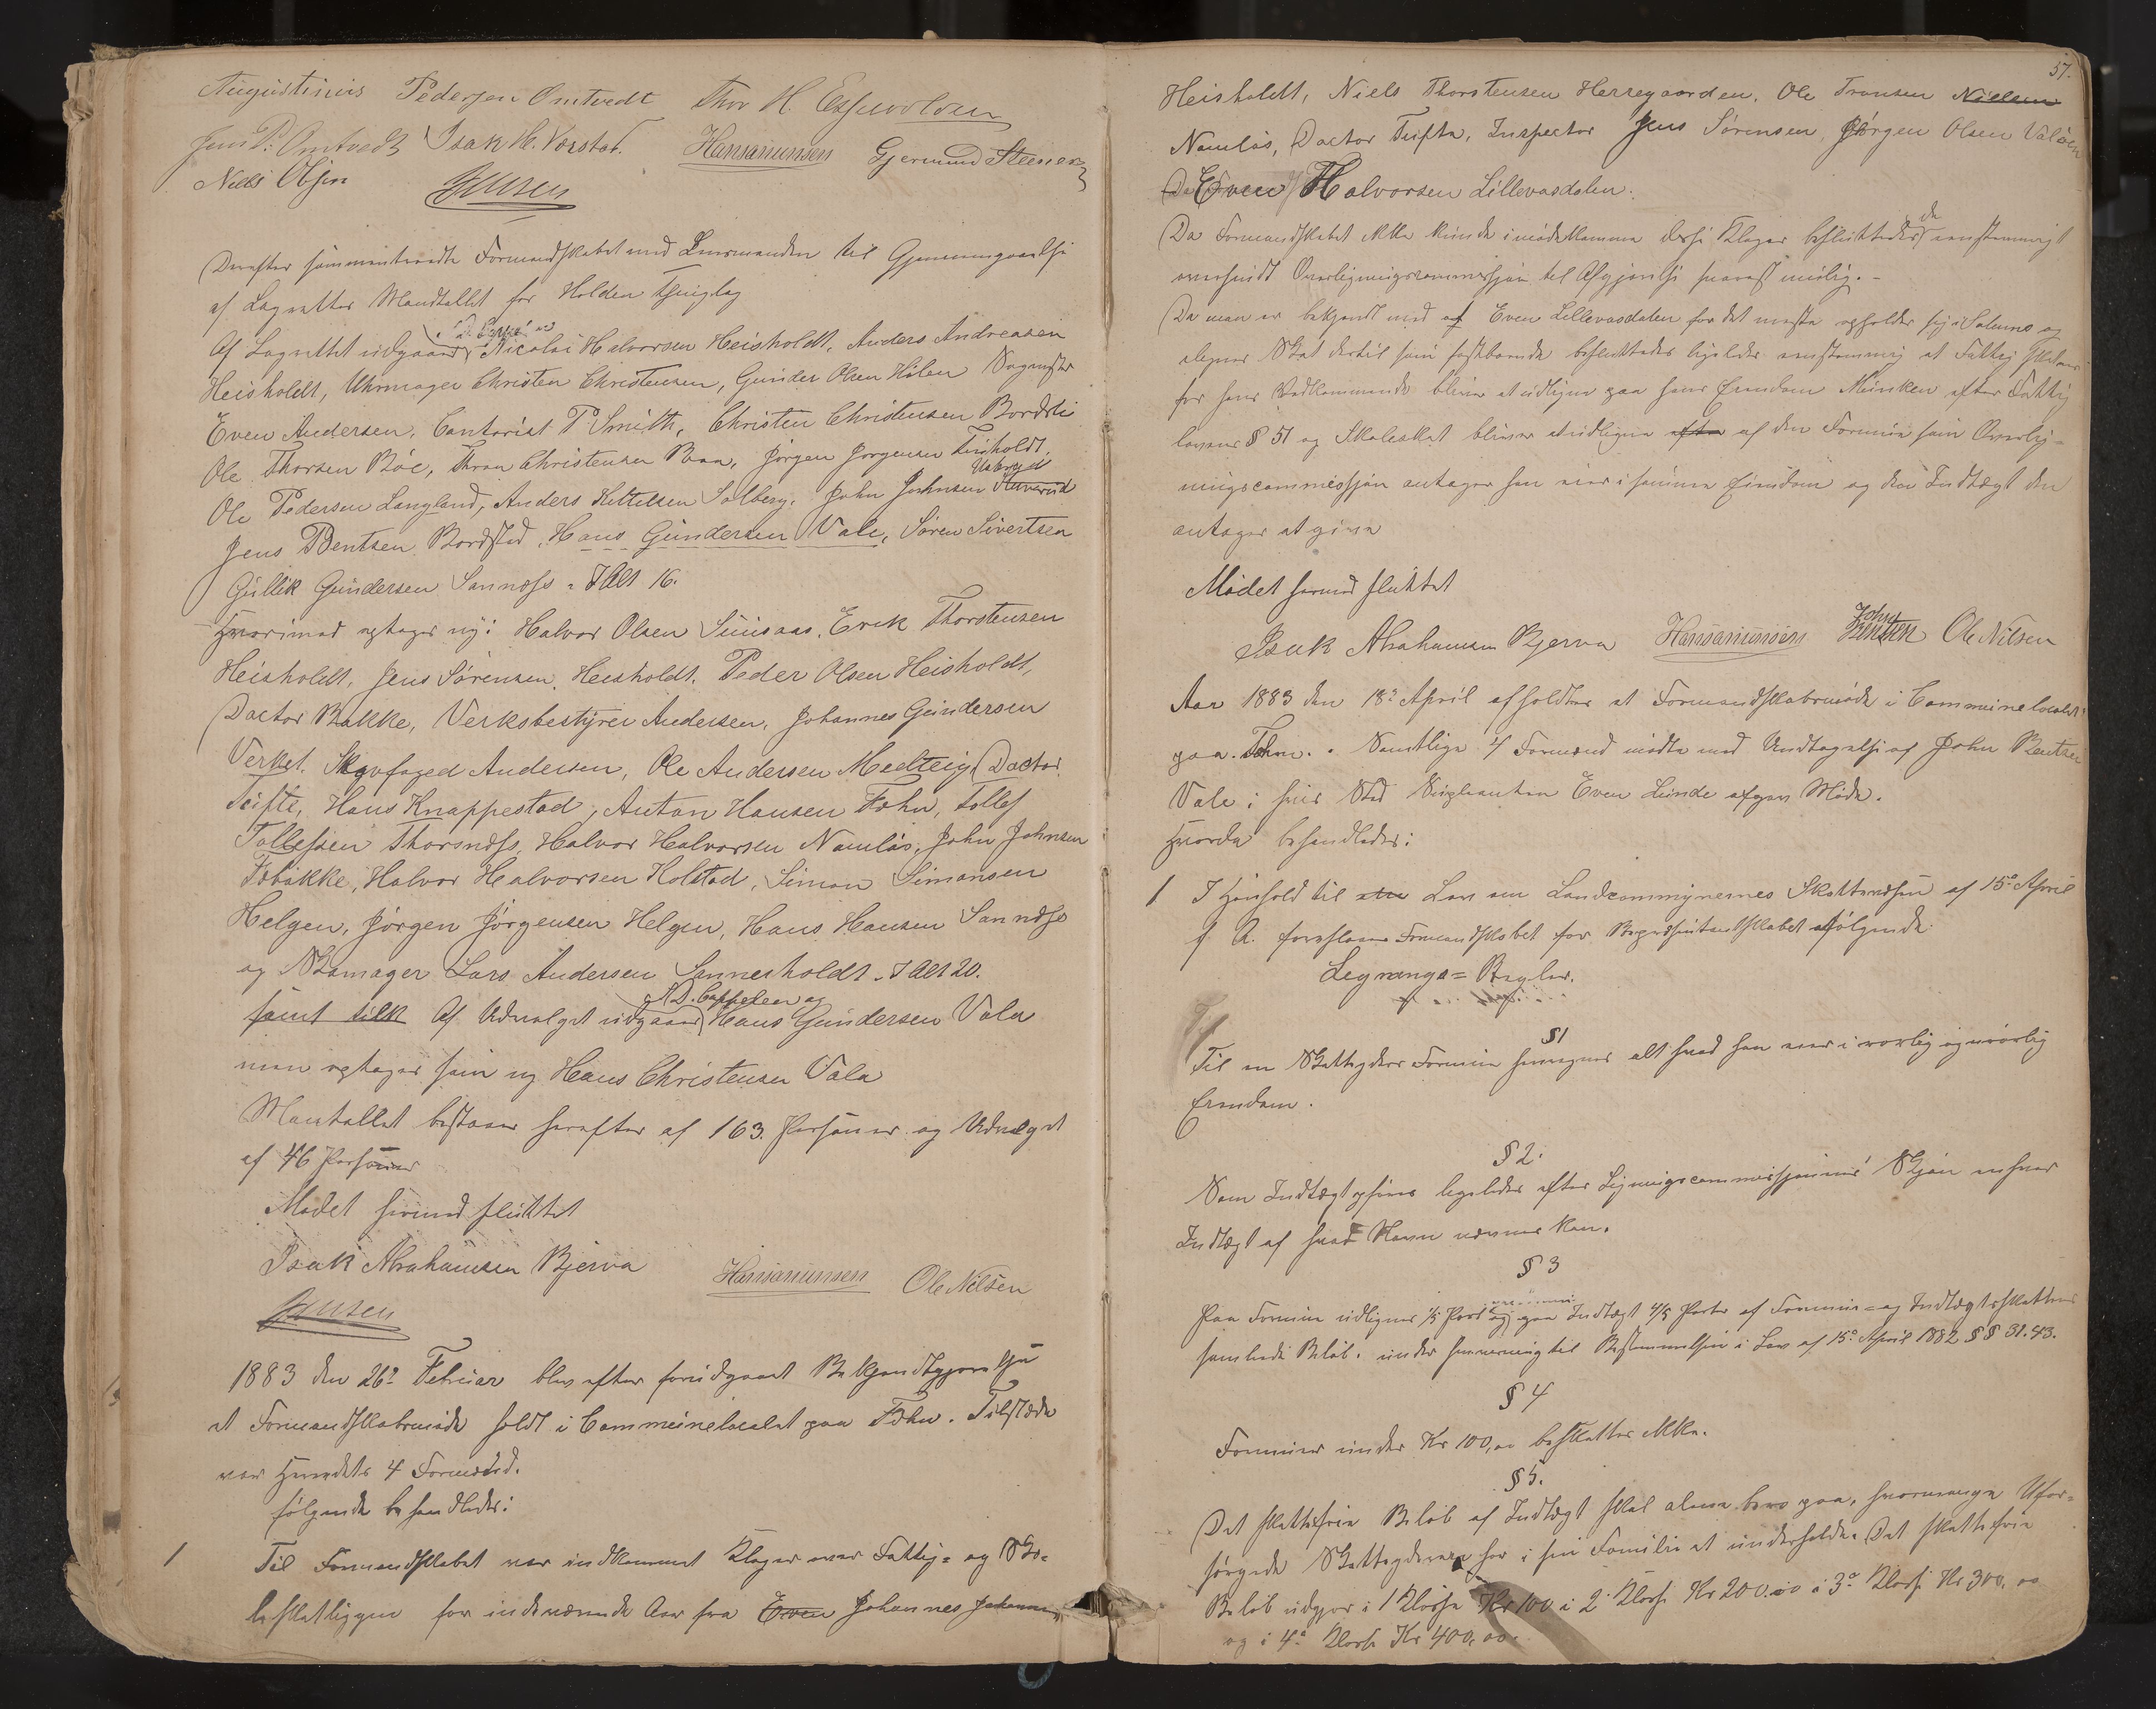 Augustinus Pedersen Omtvedt Thor H. Espevolden
Jens P. Omtvedt Isak H. Vorstad. Hansamunsen Gjermund Steener
Niels Olsen Jensen
Derefter sammentraadte Formandskabet med Lensmanden til Gjennemgaaelse
af Lagrettes Mandtallet for Holden Thinglag
Af Lagrettet udgaaer Nicolai Halvorsen Heisholdt, Anders Andreasen
Heisholdt, Uhrmager Christen Christensen, Gunder Olsen Holen
Even Andersen, Contorist P. Smith, Christen Christensen Bordsti
Ole Thorsen Böe, Thron Christensen Baa, Jørgen Jørgensen Fisholdt,
Ole Pedersen Langland, Anders Kittilsen Solberg, John Johnsen
Jens Bentsen Bordsted, Hans Gundersen Vale, Søren Sivertsen
Gullik Gundersen Sannæss - I Alt 16.
Hvorimod optages ny: Halvor Olsen Sunsaas, Erik Thorstensen
Heisholdt, Jens Sørensen Heisholdt, Peder Olsen Heisholdt,
Doctor Bakke, Verksbestyrer Andersen, Johannes Gundersen
Verket, Skovfoged Andersen, Ole Andersen Medteig, Doctor
Tufte, Hans Knappestad, Anton Hansen Fæhn, Tollef
Tollefsen Thorsnæss, Halvor Halvorsen Namløs, John Johnsen
Febakke, Halvor Halvorsen Holstad, Simon Simonsen
Helgen, Jørgen Jørgensen Helgen, Hans Hansen Sannæss
og Skomager Lars Andersen Sannesholdt. I Alt 20.
N D. Cappelen og
samt tilk Af Udvalget udgaaer Hans Gundersen Vala
men optages som ny Hans Christensen Vala
Mantallet bestaaer herefter af 163 Personer og Udvalget
af 46 Personer
Mødet hermed sluttet
Isak Abrahamsen Bjerva Hansamunsen Ole Nilsen
Jensen
1883 den 26de Februar blev efter forudgaaet Bekjendtgjørelse
et Formandskabsmøde holdt i Communelocalet paa Fæhn. Tilstede
var Herredets 4 Formænd.
følgende behandledes:
1 Til Formandskabet var indkommet Klager over Fattig- og Sko-
leskatliggen for indeværende Aar fra Even Johannes Johannes
57.
Heisholdt, Niels Thorstensen Herregaarden, Ole Tronsen Nielsen
Namløs, Doctor Tufte, Inspector Jens Sørensen, Jørgen Olsen Valöen
Even Halvorsen Lillevasdalen.
Da Formandskabet ikke kunde imødekomme disse Klager besluttedes de eenstemmigt
oversendt Overligningscommissjon til Afgjørelse snarest mulig. -
Da man er bekjendt med at Even Lillevasdalen for det meste opholder sig i Solums og
alegner Skat dertil som fastboende besluttedes ligeledes eenstemmig at Fattig Skatten
for hans Vedkommende bliver at udligne paa hans Eiendom Munken efter Fattig
lovens § 51 og Skoleskat bliver at udligne efter af den Formue som Overlig-
ningscommissjon antager han eier i samme Eiendom og den Indtægt den
antager at give
Mødet hermed sluttet
Isak Abrahamsen Bjerva Hansamunsen John Bentsen Ole Nilsen
Aar 1883 den 18de April afholdtes et Formandskabsmøde i Communelocalet
paa Fæhn. Samtlige 4 Formænd mødte med Undtagelse af John Bentsen
Vale i hvis Sted Supleanten Even Lunde afgav Møde.
Hvorda behandledes:
1 I Henhold til Lov om Landcommunernes Skattevæsen af 15de April
f A. foreslaaer Formandskabet for Repræsentantskabet følgende
Lignings= Regler.
§1
Til en Skatteyders Formue henregnes alt hvad han eier i rørlig og urørlig
Eiendom.
§ 2.
Som Indtægt opføres ligeledes efter Ligningscommissjonens Skjøn enhver
Indtægt af hvad Navn nævnes kan.
§ 3
Paa Formue udlignes 1/5 Part og paa Indtægt 4/5 Parter af Formue- og Indtægtsskattens
samlede Beløb. under henvisning til Bestemmelsen i Lov af 15de April 1882 §§ 31.43.
§ 4
Formuer under Kr 100,00 beskattes ikke.
§ 5.
Det skattefrie Beløb af Indtægt skal alene bero paa, hvormange Ufor-
sørgede Skatteyderen har i sin Familie at underholde. Det skattefrie
Beløb udgjør i 1 Klasse Kr 100 i 2 Klasse Kr 200.00 i 3de Klasse Kr 300,00
og i 4de Klasse Kr 400,00.